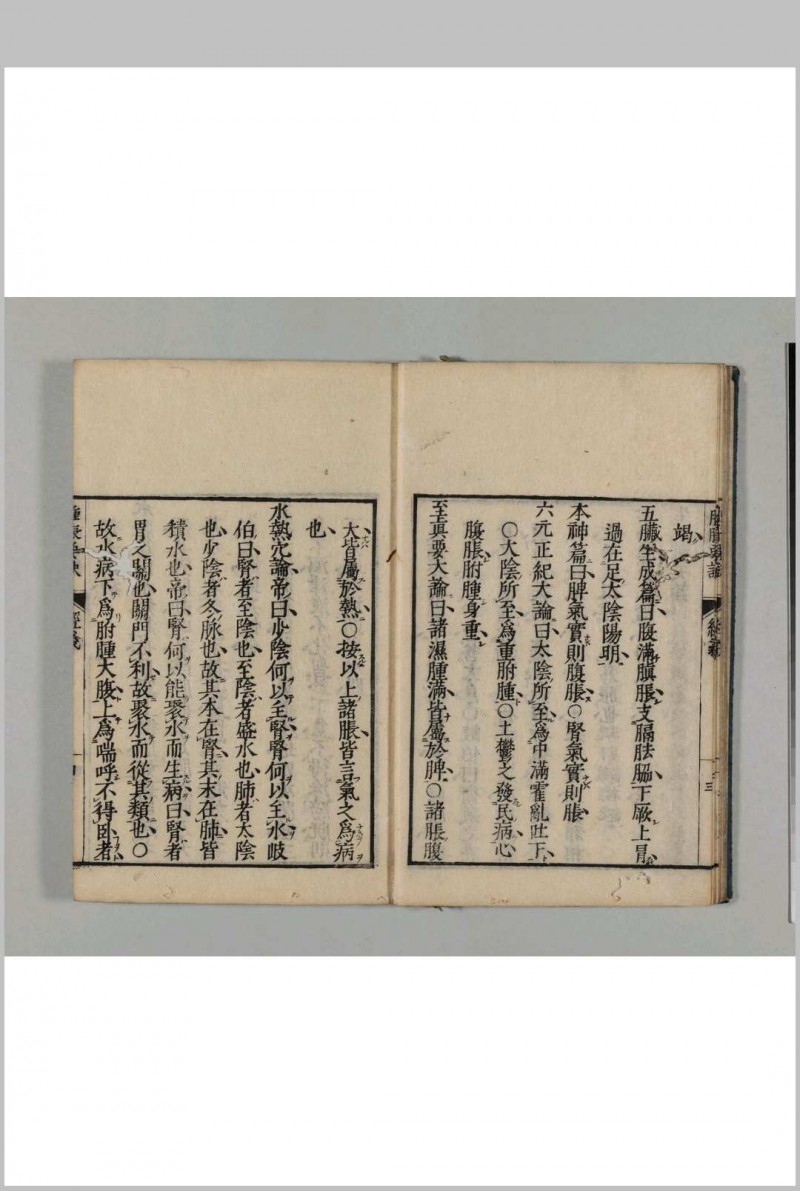 竭
五臟生成篇曰腹滿䐜脹支膈胠脇下厥上冒
過在足太陰陽明
本神篇曰脾氣實則腹脹○腎氣實則脹
六元正紀大論曰太陰所至爲中滿霍亂吐下
○太陰所至爲重胕腫○土鬱之發民病心
腹脹胕腫身重
至眞要大論曰諸濕腫滿皆屬於脾○諸脹腹
三
大皆屬於熱○按以上諸脹皆言氣之爲病
也
水熱穴論帝曰少陰何以主腎腎何以主水岐
伯曰腎者至陰也至陰者盛水也肺者太陰
也少陰者冬脉也故其本在腎其末在肺皆
積水也帝曰腎何以能聚水而生病曰腎者
胃之關也關門不利故聚水而從其類也○
故水病下爲胕腫大腹上爲喘呼不得卧者